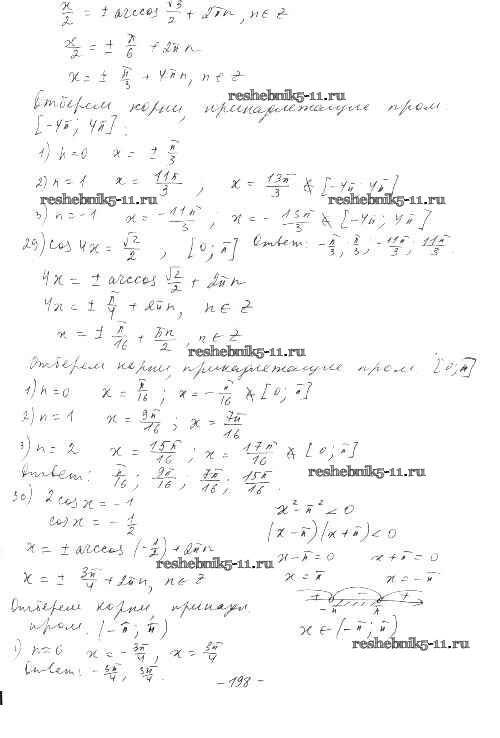 x/2 = ± arccos √3/2 + 2πn, n∈Z
x/2 = ± π/6 + 2πn
x = ± π/3 + 4πn, n∈Z
reshebnik5-11.ru
Отберем корни, принадлежащие пром
[-4π; 4π]:
1) n=0 x = ± π/3
2) n=1 x = 11π/3 ; x = 13π/3 ∉ [-4π; 4π]
reshebnik5-11.ru reshebnik5-11.ru
3) n=-1 x = -11π/3 ; x = -13π/3 ∉ [-4π; 4π]
29) cos 4x = √2/2 , [0; π] Ответ: -π/3, π/3, -11π/3, 11π/3.
4x = ± arccos √2/2 + 2πn
4x = ± π/4 + 2πn, n∈Z
x = ± π/16 + πn/2, n∈Z
reshebnik5-11.ru
Отберем корни, принадлежащие пром [0; π]
1) n=0 x = π/16 ; x = -π/16 ∉ [0; π]
2) n=1 x = 9π/16 ; x = 7π/16
3) n=2 x = 15π/16 ; x = 17π/16 ∉ [0; π]
Ответ: π/16; 9π/16; 7π/16; 15π/16.
reshebnik5-11.ru
30) 2cos x = -1
cos x = -1/2
x = ± arccos (-1/2) + 2πn
reshebnik5-11.ru
x = ± 3π/4 + 2πn, n∈Z
Отберем корни принадл.
пром. (-π; π)
1) n=0 x = -3π/4, x = 3π/4
Ответ: -3π/4, 3π/4.
x² - π² < 0
(x-π)(x+π) < 0
x-π=0 x+π=0
x=π x=-π
+ - +
-π π
x∈(-π; π)
reshebnik5-11.ru
-198-